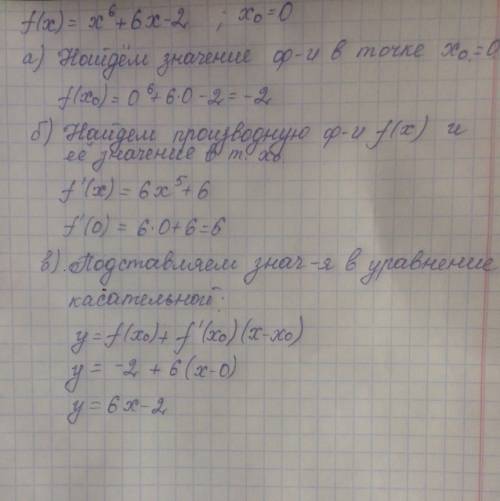 f(x) = x⁶+6x-2 ; x₀=0
а) Найдём значение ф-и в точке x₀=0
f(x₀) = 0⁶+6·0-2=-2
б) Найдем производную ф-и f(x) и
её значение в т. x₀
f'(x) = 6x⁵+6
f'(0) = 6·0+6=6
в). Подставляем знач-я в уравнение
касательной:
y = f(x₀)+ f'(x₀)(x-x₀)
y = -2 + 6(x-0)
y = 6x-2